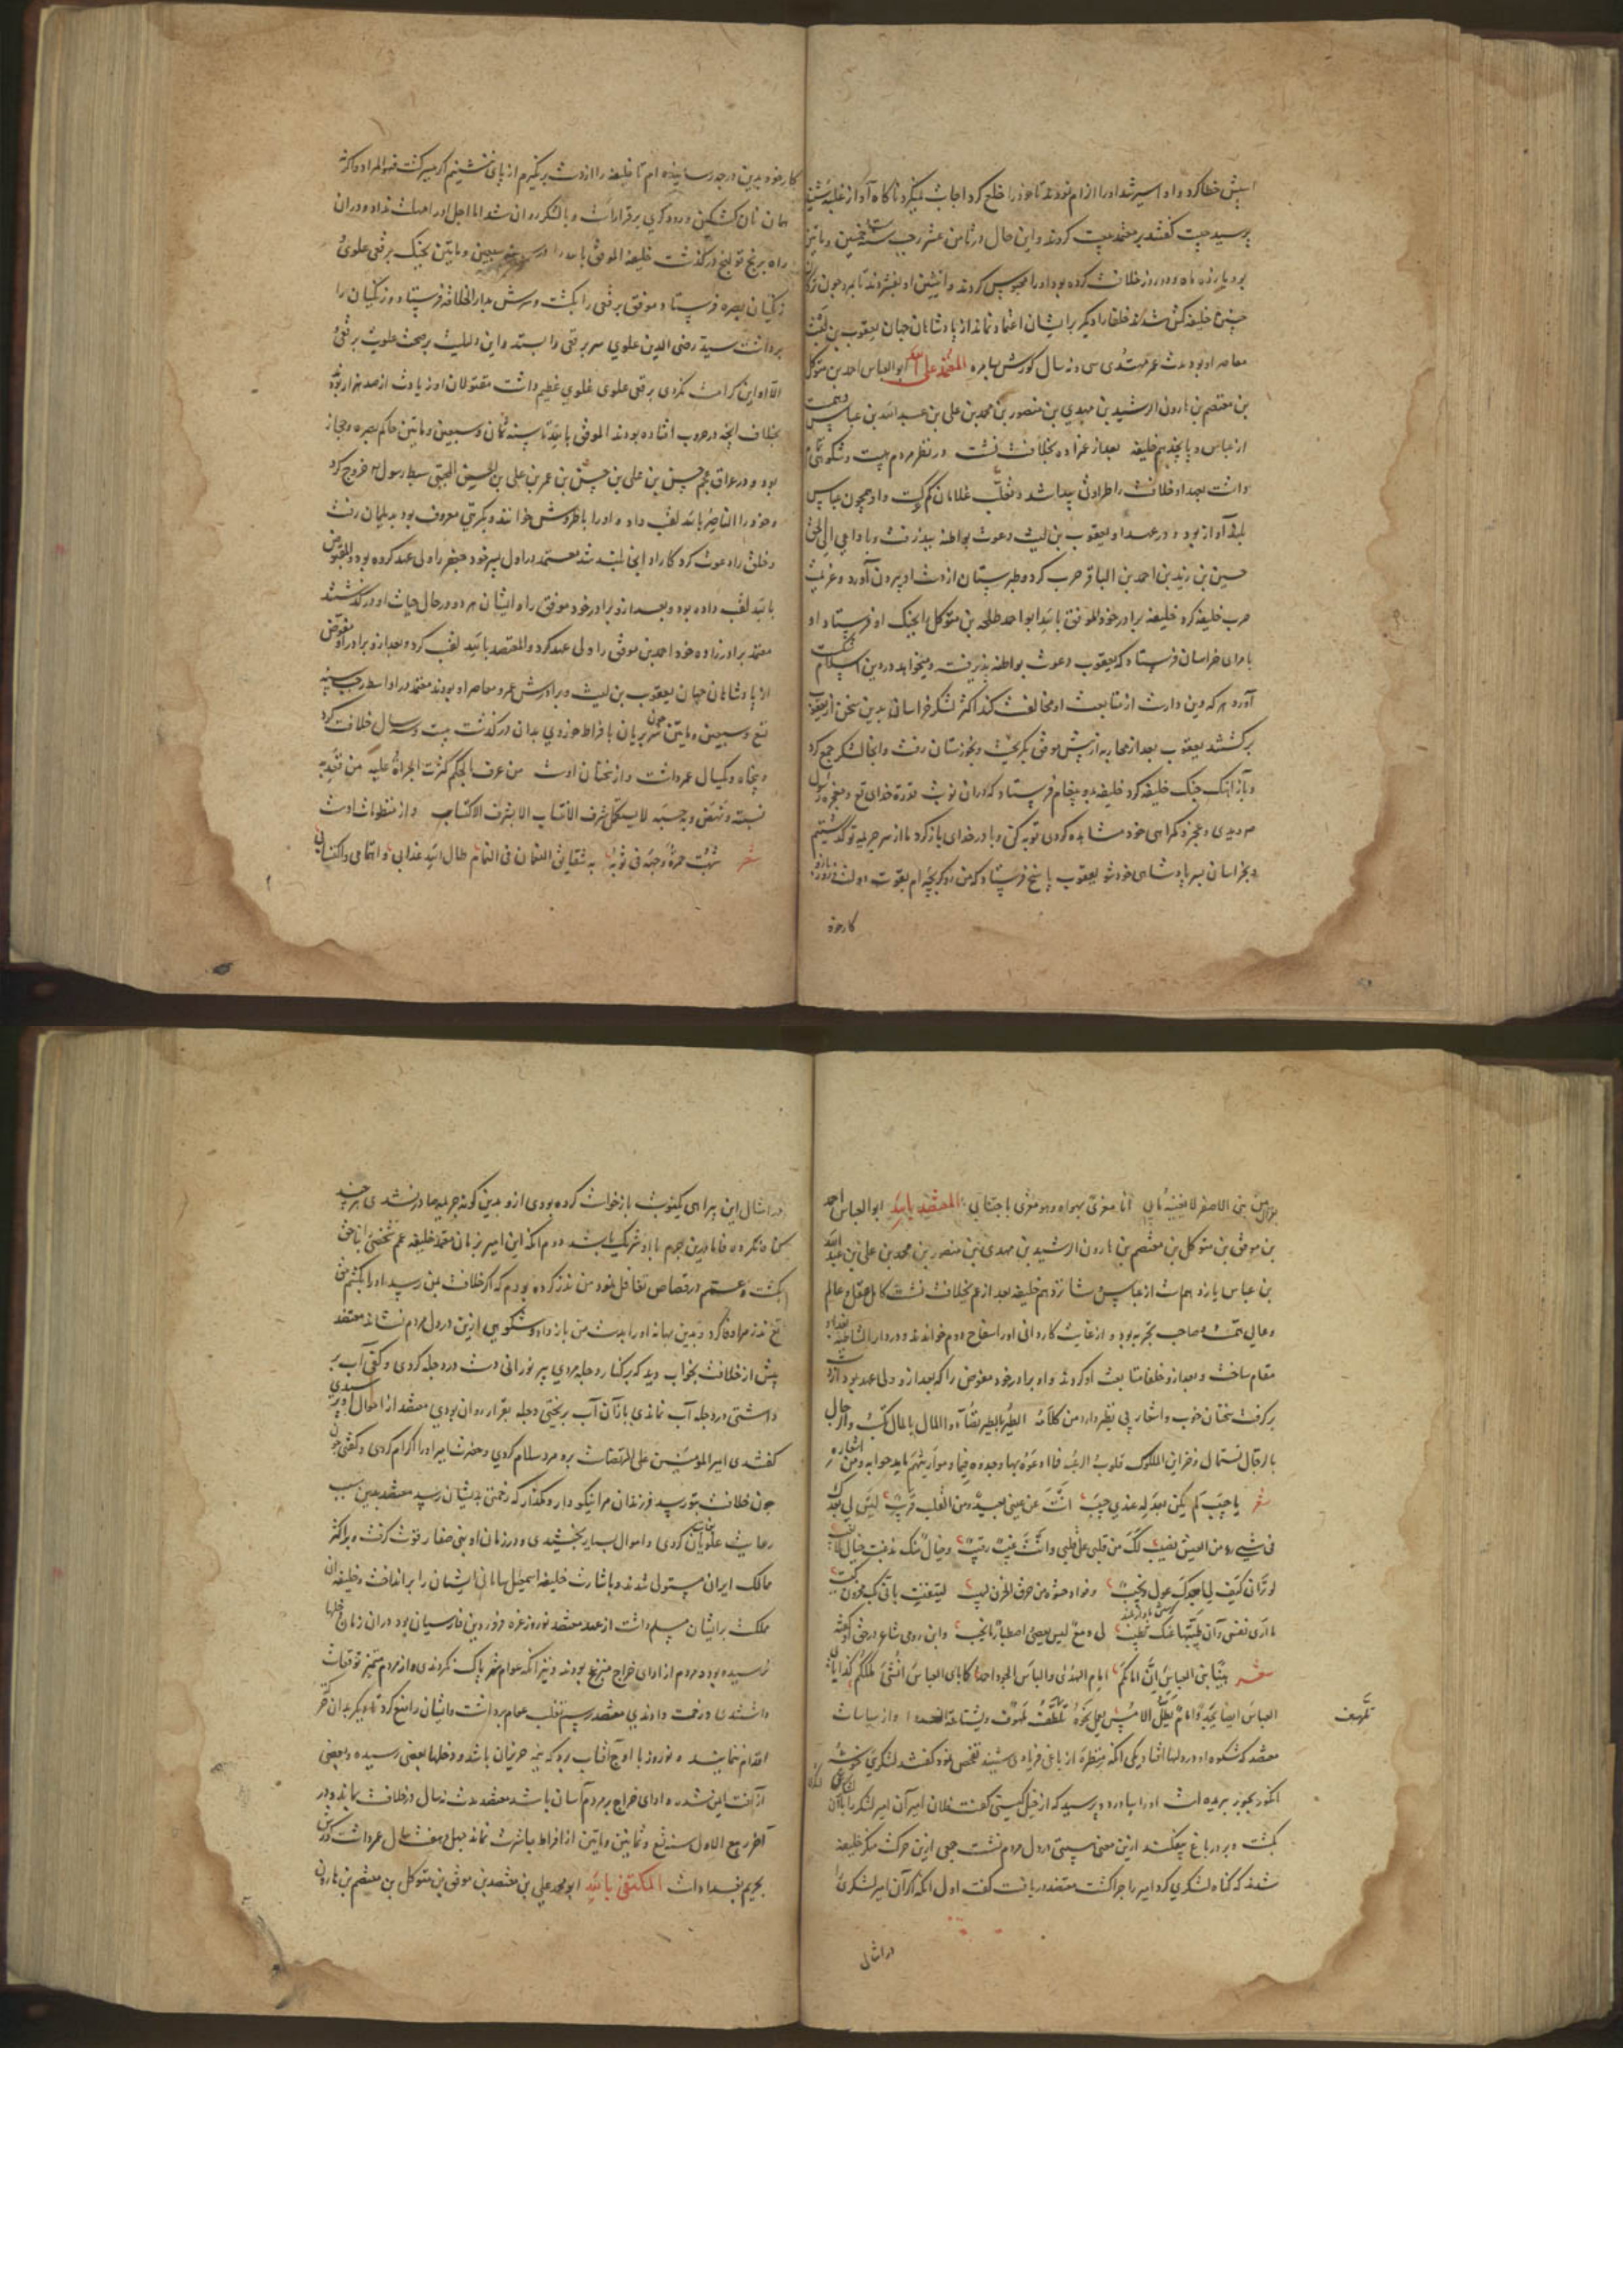 اسپش خطا کرد و او اسیر شد او را الزام نمودند تا خود را خلع کرد اجابت نمیکرد ناگاه آواز غلبه شنید
پرسید چیست گفتند بر معتمد بیعت کردند و این حال در ثامن عشر رجب سنه ست خمسین و مایتین
بود یازده ماه و دو روز خلافت کرده بود او را محبوس کردند و انثیین او بفشردند تا بمرد چون ترکان
چنین خلیفه کش شدند خلفا را دیگر بر ایشان اعتماد نماند از پادشاهان جهان یعقوب بن لیث
معاصر او بود مدت عمر مهتدی سی و نه سال گورش بسامره المعتمد علی الله ابو العباس احمد بن متوکل
بن معتصم بن هارون الرشید بن مهدی بن منصور بن محمد بن علی بن عبد الله بن عباس
از عباس و پانجدهم خلیفه بعد از عمزاده بخلافت نشست در نظر مردم هیبت و شکوهی
داشت بعهد او خلافت را طراوتی پیدا شد و تغلب غلامان کم گشت و او همچون عباس
بلند آواز بود و در عهد او یعقوب بن لیث دعوت بواطنه بپذرفت و با داعی الی الحق
حسین بن زید بن احمد بن الباقر حرب کرد و طبرستان از دست او بیرون آورد و عزیمت
حرب خلیفه کرد خلیفه برادر خود الموفق بالله ابو احمد طلحه بن متوکل بجنک او فرستاد او
بامرای خراسان فرستاد که یعقوب دعوت بواطنه پذیرفت و میخواهد در دین اسلام شکست
آورد هر که دین دارست از متابعت او مخالفت کند اکثر لشکر خراسان بدین سخن از یعقوب
برگشتند یعقوب بعد از محاربه از پیش موفق بگریخت و بخوزستان رفت و آنجا لشکر جمع کرد
و باز اهنک جنک خلیفه کرد خلیفه بدو پیغام فرستاد که در ان نوبت قدرة خدای تع و معجزه رسول
بخراسان بسر پادشاهی خود شو یعقوب پاسخ فرستاد که من رویگر بچه ام بقوت دولت و زور بازو
کار خود
کار خود بدین درجه رسانیده ام تا خلیفه را از دست برنگیرم از پای ننشینم اگر میسر گشت فهو المراد و اگر نه
همان نان کشکین و رودگری برقرارست و با لشکر روان شد اما اجل او را مهلت نداد و در ان
راه برنج قولنج درگذشت خلیفه الموفق بالله را در سبعین و مایتین بجنک برقعی علوی
زنگیان بصره فرستاد و موفق برقعی را بکشت و سرش بدار الخلافه فرستاد و زنگیان را
برداشت سید رضی الدین علوی سر برقعی را بستد و این دلیلست بر صحت علویت برقعی و
الا او این کرامت نکردی برقعی علوی غلوی عظیم داشت مقتولان او زیادت از صد هزار بودند
بخلاف انچه در حروب افتاده بودند الموفق بالله تا سنه ثمان و سبعین و مایتین حاکم بصره و حجاز
بود و در عراق عجم حسن بن علی بن حسن بن عمر بن علی بن الحسین المجتبی سبط رسول خروج کرد
و خود را الناصر بالله لقب داد و او را باطروش خوانند و بکریتی معروف بود بدیلمان رفت
و خلق را دعوت کرد کار او انجا بلند شد معتمد در اول پسر خود جعفر را ولی عهد کرده بود و المفوض
بالله لقب داده بود و بعد ازو برادر خود موفق را و ایشان هر دو در حال حیات او درگذشتند
معتمد برادرزاده خود احمد بن موفق را ولی عهد کرد و المعتضد بالله لقب کرد
از پادشاهان جهان یعقوب بن لیث و برادرش عمرو معاصر او بودند معتمد در اواسط رجب سنه
تسع و سبعین و مایتین بریان بافراط خوردی بدان درگذشت بیست و سه سال خلافت کرد
و پنجاه و یکسال عمر داشت و از سخنان اوست من عرف بالحکم کثرت الجراة علیه من قعد به
نسبه و نهض به حسبه لا یستکمل شرف الانتساب الا بشرف الاکتساب و از منظومات اوست
شعر
بن بنی الاصفر انا مغری بهواه وهو مغری باجتنابی المعتضد بالله ابو العباس احمد
بن موفق بن متوکل بن معتصم بن هارون الرشید بن مهدی بن منصور بن محمد بن علی بن عبد الله
بن عباس یازدهم است از عباس شانزدهم خلیفه بعد از عم بخلافت نشست کامل عقل و عالم
و عالی همت و صاحب تجربه بود و از غایت کاردانی او را سفاح دوم خواندند و در دار الشاطیه بغداد
مقام ساخت و بعد ازو خلفا متابعت او کردند و او برادر خود مفوض را که بعد ازو ولی عهد بود از ان
برگرفت سخنان خوب و اشعار بی نظیر دارد من کلامه الطیر بالطیر تصاد والمال بالمال یکسب والرجال
بالرجال تستمال و خزاین الملوک قلوب الرعیة فما اودعوه بها وجدوه فیها
شعر یا حبیبا لم یکن بعدله عندی حبیب انت عن عینی بعید ومن القلب قریب لیس لی بعدک
فی شیء من العیش نصیب لک من قلبی علی قلبی وان غبت رقیب وخیال منک مذ غبت خیال لا یغیب
لو ترانی کیف لی بعدک عول ونحیب وفؤاد حشوه من حرق الحزن لهیب لتیقنت بانی بک محزون کئیب
ما اری نفسی وان طیبتها عنک تطیب لی دمع لیس یعصی و اصطبار ما یجیب و ابن رومی شاعر در حق او گفته
شعر هنیئا بنی العباس ان امامکم امام الهدی والباس والجود احمد کما بابی العباس انشئ ملککم کذا بابی
العباس ایضا یجدد و از سیاسات
معتضد که شکوه او در دلها افتاد یکی انکه منتظره از باغی فریاد می شنید تفحص نمود گفتند لشکری خوشه
انکور بجور بریده است او را بیاورد و پرسید که از خیل کیستی گفت فلان امیر آن امیر لشکر را بلا ان
بکشت و بر در باغ بیفکند ازین معنی سیستی در دل مردم نشست جمعی ازین حرکت منکر خلیفه
شدند که گناه لشکری کرد امیر را چرا کشت معتضد دریافت گفت اول انکه اگر آن امیر لشکری را
از امثال
از امثال این بیراهی بکنوبت بازخواست کرده بودی ازو بدین گونه جریمه صادر نشدی هر چند
گناه نکرده فاما درین جرم با او شریک باشد دوم انکه این امیر بزمان معتمد خلیفه عم شخصی را بناحق
بکشت و عمم در قصاص تغافل نمود من نذر کرده بودم که اگر خلافت بمن رسید او را بکشم حق
تع نذر مرا وفا کرد و بدین بهانه او را بدست من باز داد و شکوهی ازین در دل مردم نشاند معتضد
پیش از خلافت بخواب دید که بر کنار دجله مردی پیر نورانی دست در دجله کردی و کفی آب بر
داشتی در دجله آب نماندی باز آن آب بریختی دجله بقرار روان بودی معتضد از احوال او پرسیدی
گفتندی امیر المؤمنین علی المرتضاست برو مرد سلام کردی و حضرت امیر او را اکرام کردی و گفتی
چون خلافت بتو رسد فرزندان مرا نیکو دار و مگذار که زحمتی بدیشان رسد معتضد بدین سبب
رعایت علویان کردی و اموال بسیار بخشیدی و در زمان او بنی صفار قوت گرفت و بر اکثر
ممالک ایران مستولی شدند و باشارت خلیفه اسمعیل سامانی ایشان را برانداخت و خلیفه آن
مملکت بر ایشان مسلم داشت از عهد معتضد نوروز غره فروردین فارسیان بود در ان زمان غلها
نرسیده بود و مردم از ادای خراج منزعج بودند و نیز انکه عوام شهر پاک نکردندی و از مردم متمیز توقعات
داشتندی و زحمت دادندی معتضد رسم تغلب عوام برداشت و ایشان را منع کرد تا دیگر بدان
اقدام ننمایند و نوروز با اوج آفتاب برد که نیمه حزیران باشد و دخلها بعضی رسیده و بعضی
از آفت ایمن شده و ادای خراج بر مردم آسان باشد معتضد مدت نه سال در خلافت بماند و در
آخر ربیع الاول سنه تسع و ثمانین و مایتین از افراط مباشرت نماند چهل و هفت سال عمر داشت گورش
بحریم بغدادست المکتفی بالله ابو محمد علی بن معتضد بن موفق بن متوکل بن معتصم بن هارون